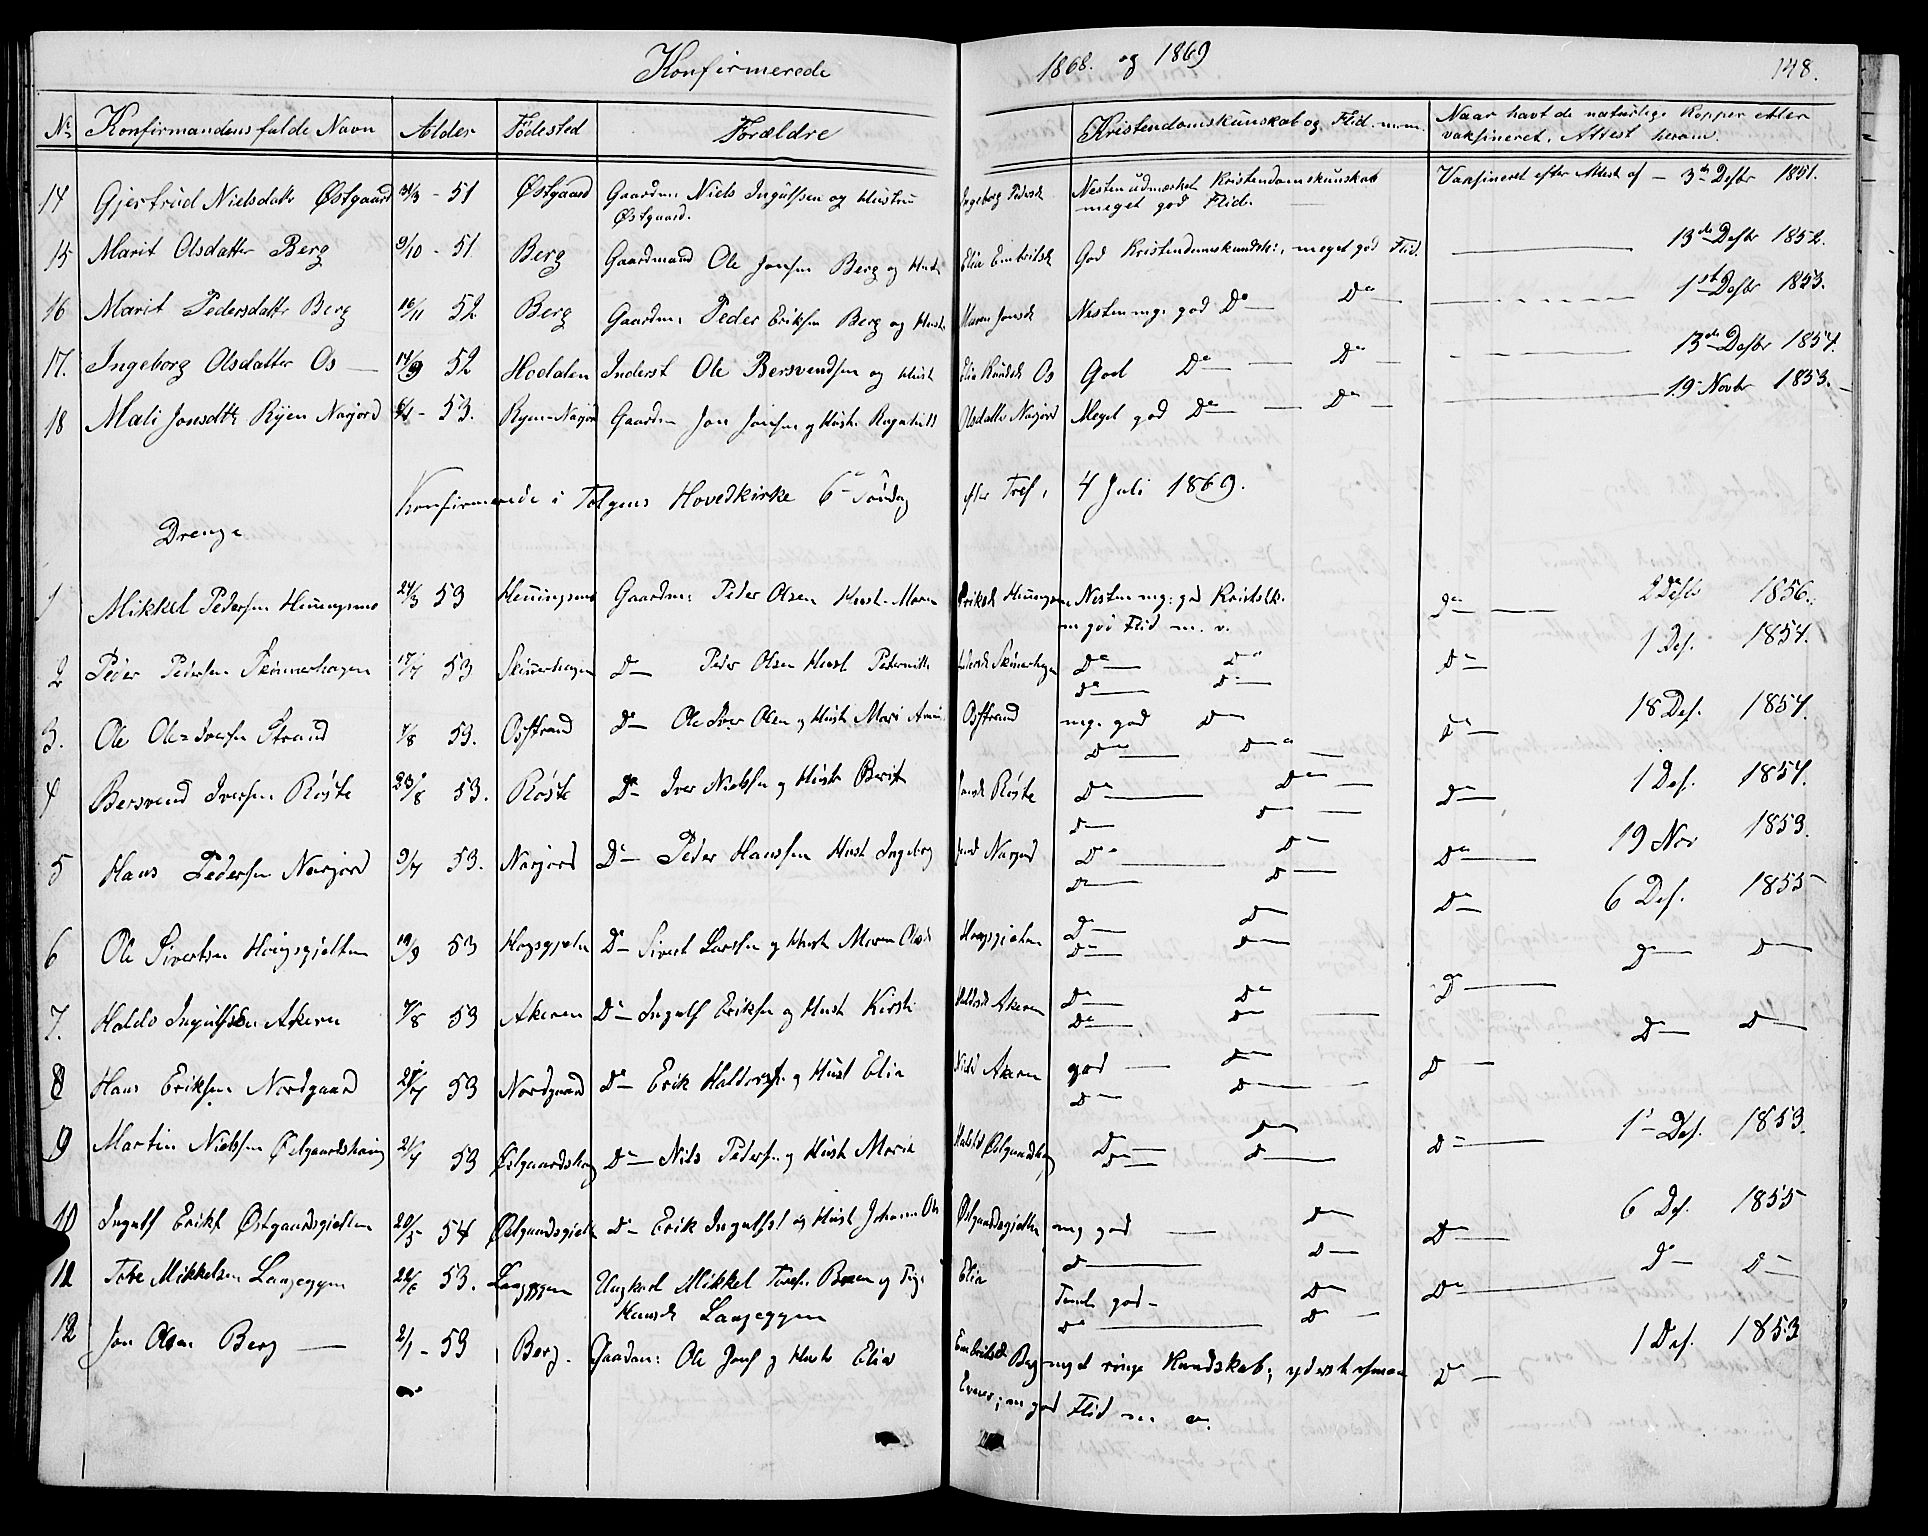 Konfirmerede 1868. og 1869 148.
No Konfirmandens fulde Navn Alder Fødested Forældre Kristendomskundskab og Flid m.m. Naar havt de naturlige Kopper eller
vaksineret, Attest herom.
14 Gjertrud Nielsdatr Østgaard - 51 Østgaard Gaardm: Niels Ingulfsen og Hustru Ingeborg Pedersd Nesten udmærket Kristendomskundskab Vaksineret efter Attest af — 3de Desbr 1851.
Østgaard. meget god Flid.
15 Marit Olsdatter Berg 9/10 - 51 Berg Gaardmand Ole Jonsen Berg og Hustr Elia Embritsd God Kristendomskundsk:, meget god Flid. — 13de Desbr 1852.
16 Marit Pedersdattr Berg 16/11 52 Berg Gaardm: Peder Eriksen Berg og Hustr Maren Jonsd Nesten mg. god Do — Do — 1st Desbr 1853.
17. Ingeborg Olsdatter Os — 14/9 52 Hodalen Inderst Ole Bersvendsen og Hust Elia Os God Do — Do — 13de Desbr 1854.
18 Mali Jonsdtr Ryen Narjord - 53. Ryen-Narjor Gaardm Jon Jonsen og Hustr Ragnhild Olsdattr Narjord Meget god Do — Do — 19 Novbr 1853.
Konfirmerede i Tolgens Hovedkirke 6te Søndag efter Tref, 4 Juli 1869.
Drenge
1 Mikkel Pedersen Henningsmo 24/3 53 Henningsmo Gaardm: Peder Olsen Hust. Maren Eriksd Henningsm Nesten mg: god Kristdsk. Do — 2 Desbr 1856.
m god Flid m. v.
2 Peder Pedersen Skinnerhagen 17/7 53 Skinerhagen Do — Peder Olsen Hust Skinerhagen Do — Do Do — 1 Des. 1854.
Do — Do —
3. Ole Strand /8 53. Osstrand Do — Ole Iver Olsen og Hustr Mari Osstrand mg. god Do Do — 18 Des. 1854.
Do — Do —
4 Bersvend Iversen Røste 23/8 53. Røste Do Iver Nielsen og Hustr Berit Jonsd Røste Do — Do — Do — 1 Des. 1854.
Do — Do —
5 Hans Pedersen Narjord 9/7 53. Narjord Do — Peder Hansen Hust Ingeborg Narjord Do — Do — Do — 19 Nov 1853.
Do — Do —
6 Ole Sivertsen 19/9 53 Do — Sivert Larsen og Hust Maren Olsd Do — Do Do — 6 Des. 1855
Do — Do —
7. Haldo Ingulfsen Akeren 7/8 53 Akeren Do — Ingulf Eriksen og Hust Kirsti Haldosd Akeren Do — Do Do — Do — Do —
Do — Do —
8 Hans Eriksen Nordgaard 53 Nordgaard Do — Erik Haldorsen og Hust Elia Akeren god — Do — Do — Do — Do —
Do — Do —
9 Martin Nielsen Østgaardshaug 21/4 53 Østgaardshog Do — Nils Pedersen og Hust Marie Østgaardshog Do — Do — Do — 1 Des. 1853.
Do — Do —
10 Ingulf Eriks Østgaardsgjelten 20/5 54 Østgaardsgjelt Do — Erik Ingulfsl og Hust Johanne Ols Østgaardsgjelten mg god — Do — Do — 6 Des. 1855
Do — Do —
11 Tore Mikkelsen Langeggen 22/6 53. Langeggen Ungkarl Mikkel Toresn og Pige Elia Teml. god — Do — Do — Do — Do —
Hansd Langeggen Do — Do —
12 Jon Olsen Berg — 2/1 - 53 Berg. Gaardm: Ole Jons og Hustr Elia Embritsd Berg meget ringe Kundskab; yderst Do — 1 Des. 1853
Evner; m god Flid m v.